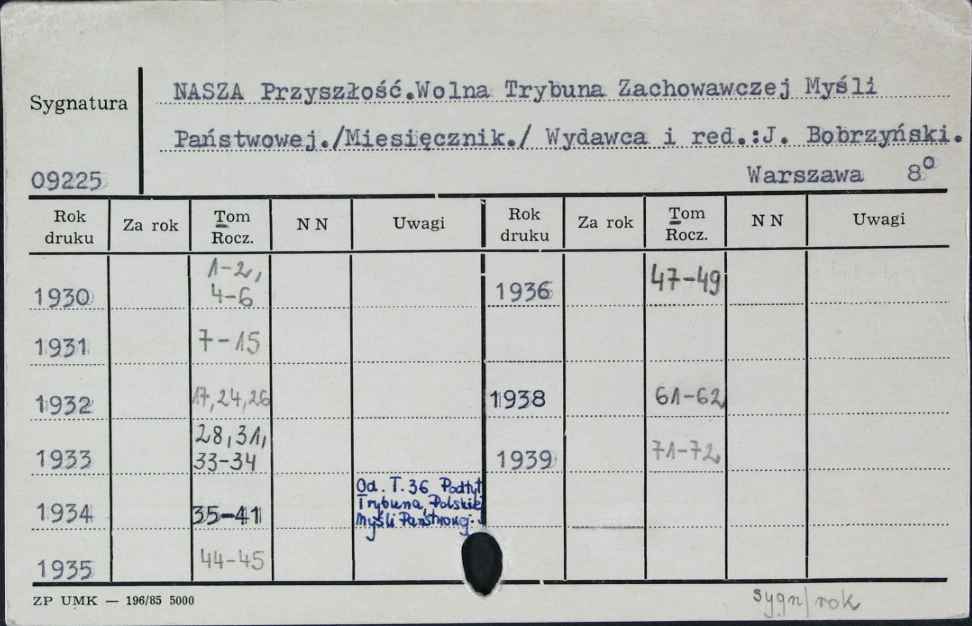 NASZA Przyszłość.Wolna Trybuna Zachowawczej Myśli
Sygnatura
Państwowej./Miesięcznik./ Wydawca i red.:J. Bobrzyński.
09225 Warszawa 8o
Rok druku Za rok Tom Rocz. N N Uwagi Rok druku Za rok Tom Rocz. N N Uwagi
1930 1-2, 4-6 1936 47-49
1931 7-15
1932 17,24,26 1938 61-62
1933 28,31, 33-34 1939 71-72
1934 35-41 Od. T.36 Podtyt Trybuna Polskiej Myśli Państwowej.
1935 44-45
ZP UMK — 196/85 5000 sygn/rok